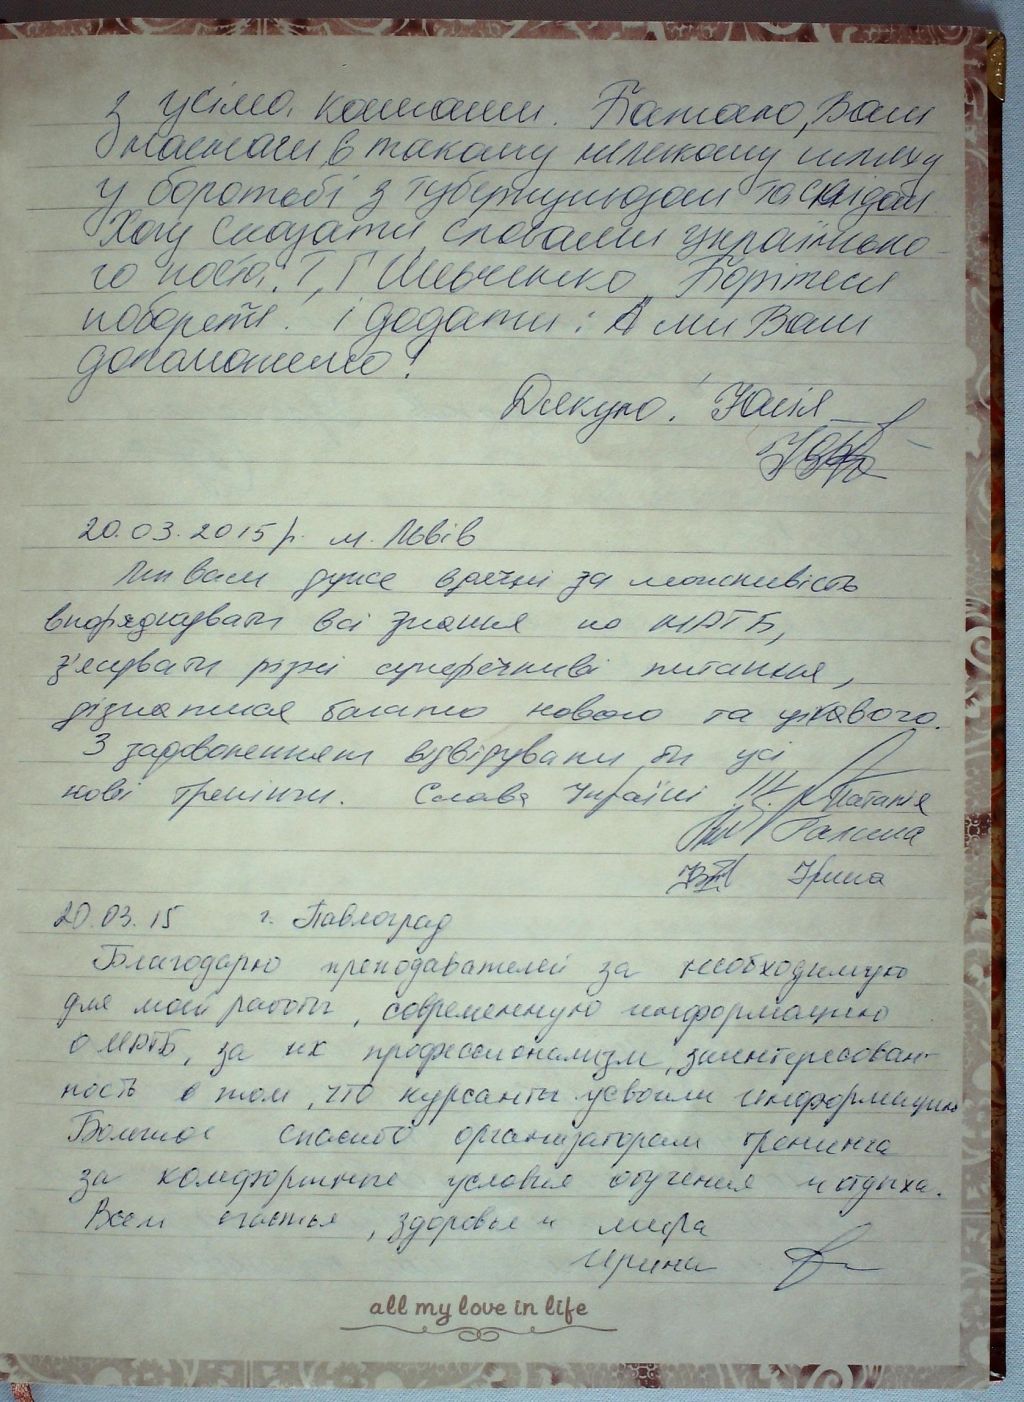 з усіма, коштами. Бажаю, Вам
наснаги, в такому нелегкому шляху
у боротьбі з туберкульозом та снідом
Хочу сказати словами українсько-
го поета, Т, Г Шевченко, Борітеся
поборете! і додати: А ми Вам
допоможемо!
Дякую! Юлія
20.03.2015 р. м. Львів
Ми вам дуже вдячні за можливість
впорядкувати всі знання по МРТБ,
з'ясувати різні суперечливі питання,
дізнатися багато нового та цікавого.
З задоволенням відвідували би усі
нові тренінги. Слава Україні !!! Наталія
Галина
Ірина
20.03.15 г. Павлоград
Благодарю преподавателей за необходимую
для моей работы, современную информацию
о МРТБ, за их профессионализм, заинтересован-
ность в том, что курсанты усвоили информацию
Большое спасибо организаторам тренинга
за комфортные условия обучения и отдыха.
Всем счастья, здоровья и мира
Ирина
all my love in life